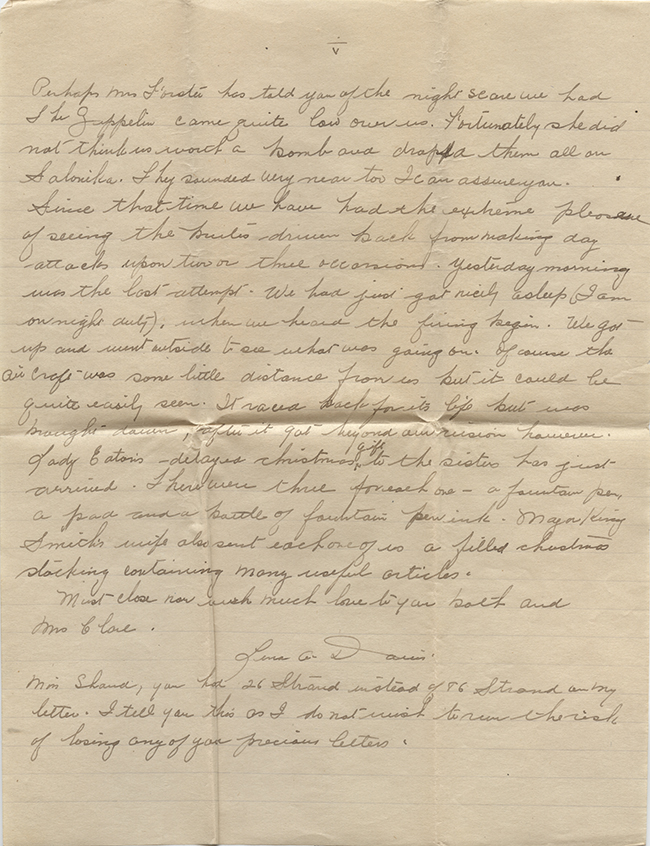 V
Perhaps Mrs Forster has told you of the night scare we had
The Zeppelin came quite low over us. Fortunately she did
not think us worth a bomb and dropped them all on
Salonika. They sounded very near too I can assure you.
Since that time we have had the extreme pleasure
of seeing the brutes driven back from making day
attacks upon two or three occasions. Yesterday morning
was the last attempt. We had just got nicely asleep (I am
on night duty), when we heard the firing begin. We got
up and went outside to see what was going on. Of course the
air craft was some little distance from us but it could be
quite easily seen. It raced back for its life but was
brought down, after it got beyond our vision however.
Lady Eaton's delayed christmas gift to the sisters has just
arrived. There were three for each one - a fountain pen,
a pad and a bottle of fountain pen ink. Major King
Smith's wife also sent each one of us a filled christmas
stocking containing many useful articles.
Must close now with much love to you both and
Mrs
Lena A. Davis.
Miss Shand, you had 26 Strand instead of 86 Strand on my
letter. I tell you this as I do not wish to run the risk
of losing any of your precious letters.